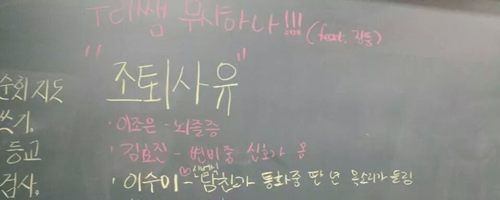 우리쌤 무사하나!!! (feat. 진통)
"조퇴사유"
순회지도
쓰기.
· 이조은 - 뇌졸증
등교
· 김효진 - 변비중 신호가 옴
검사.
· 이수이 - 남친과 통화중 딴 년 목소리가 들림